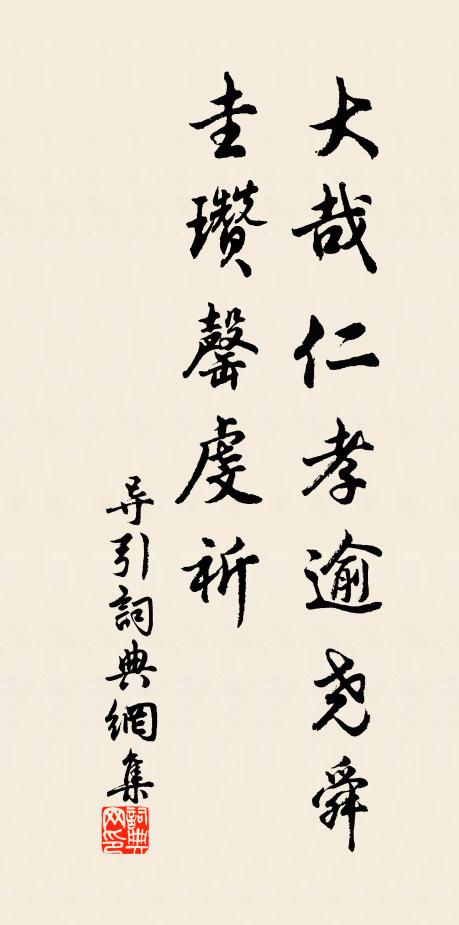 大哉仁孝逾尧舜
圭瓒罄虔祈
导引詞典網集
詞典网印